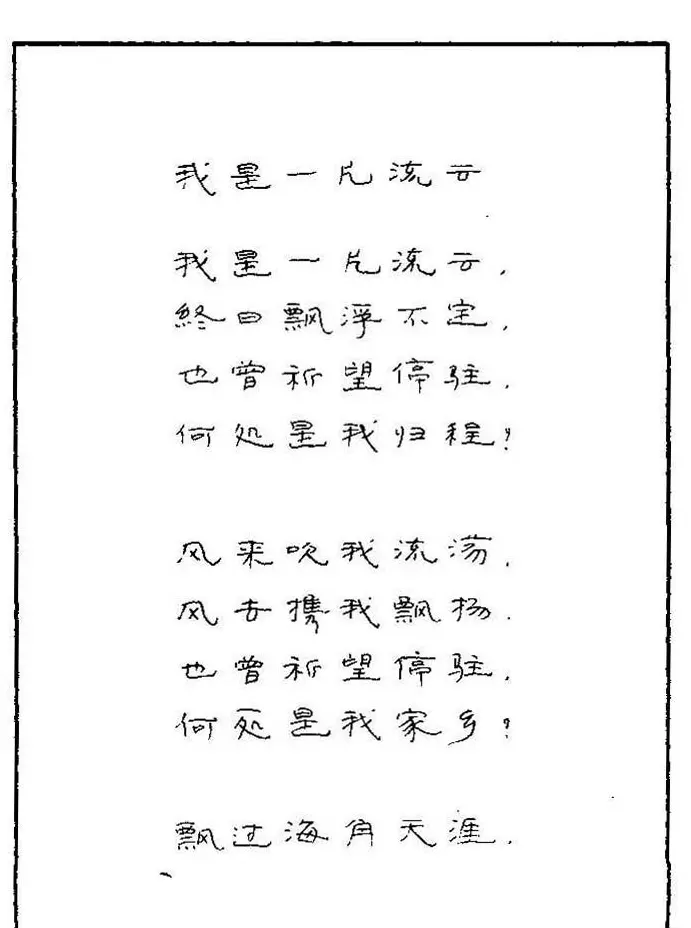 我是一片流云
我是一片流云,
終日飘浮不定,
也曾祈望停驻,
何处是我归程?
风来吹我流荡,
风去携我飘扬.
也曾祈望停驻,
何处是我家乡?
飘过海角天涯,